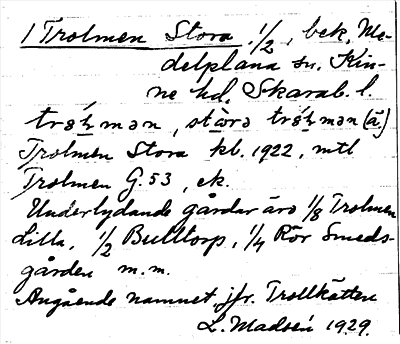 1 Trolmen Stora, 1/2, bek, Me-
delplana sn. Kin-
ne hd, Skarab. l.
stora
Trolmen Stora kb. 1922, mtl
Trolmen G. 53, ek.
Underlydande gårdar äro 1/8 Trolmen
Lilla, 1/2 Bulltorp, 1/4 Rör Smeds-
gården m.m.
Angående namnet jfr. Trollkätten
L. Madsén 1929.